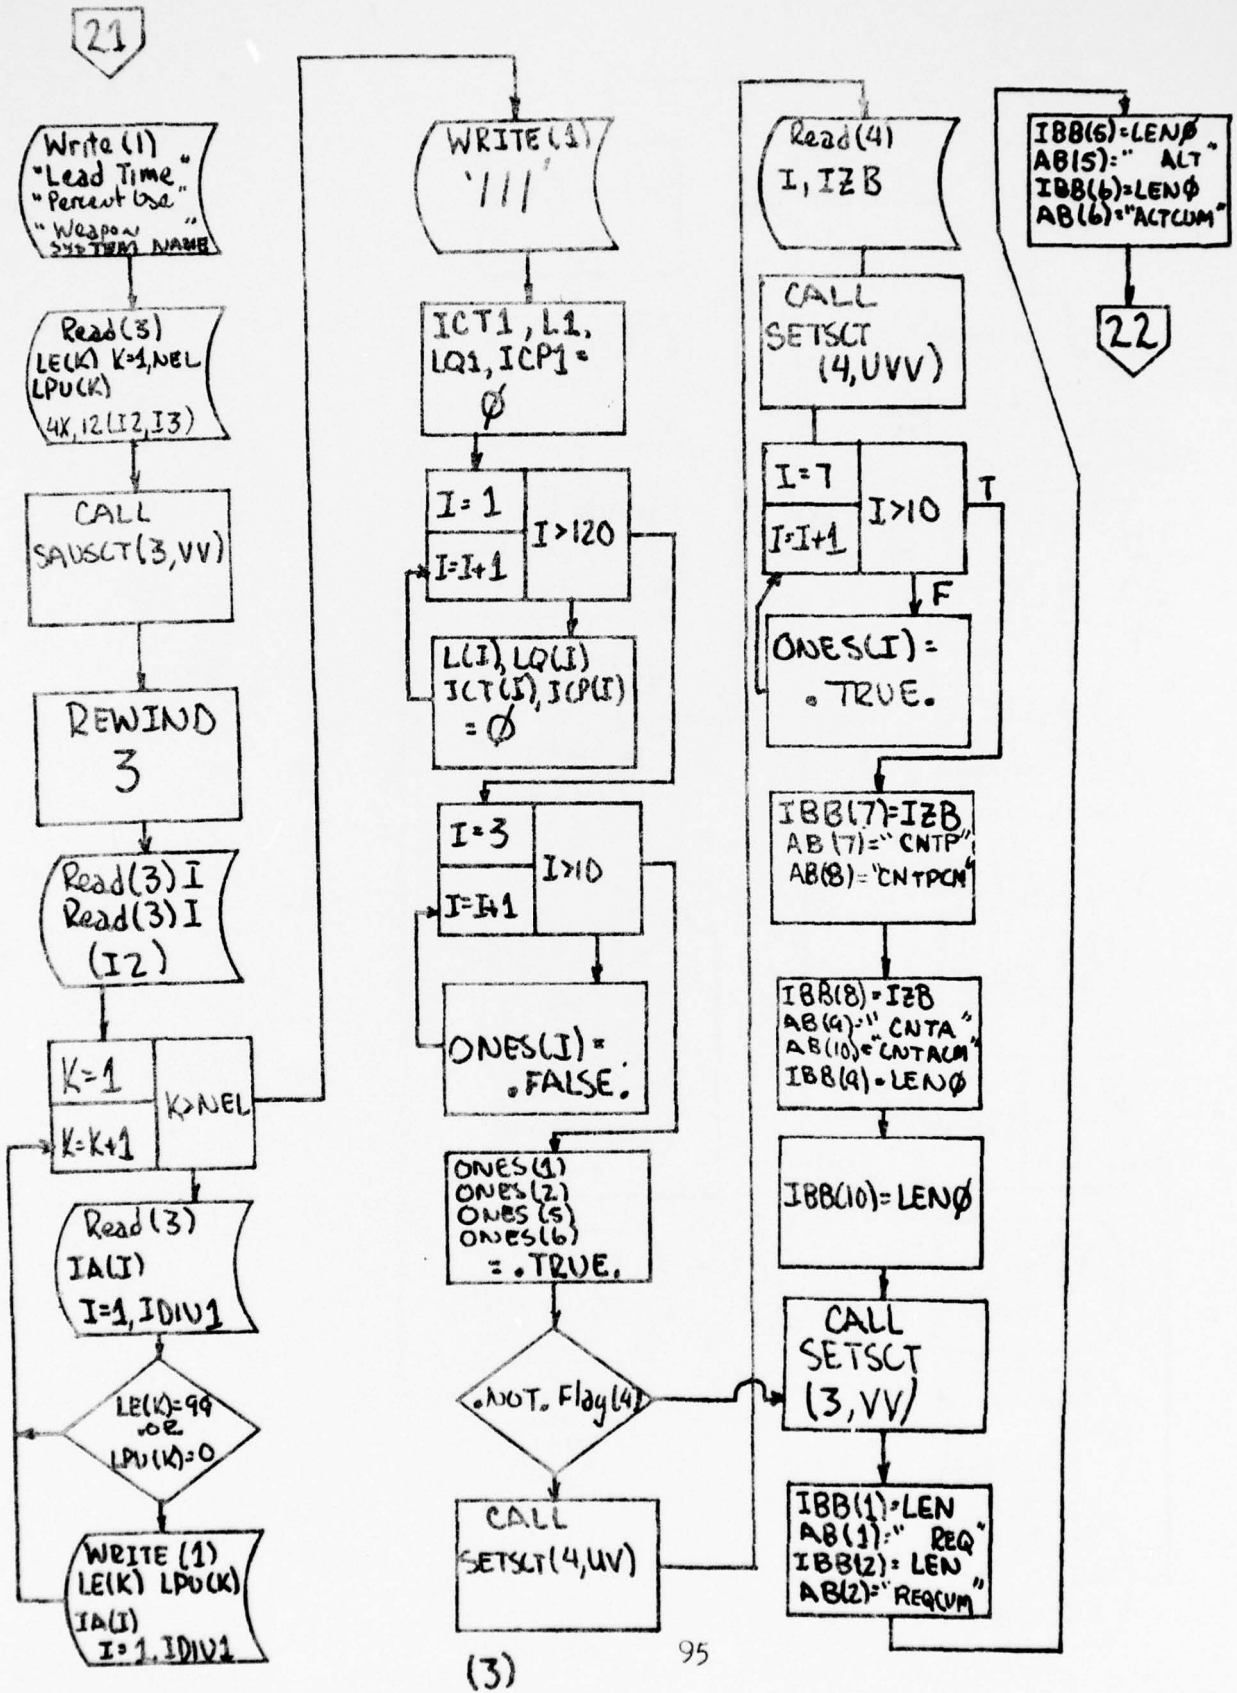 21
Write(1)
"Lead Time"
"Percent Use"
"Weapon "
SYSTEM NAME
Read(3)
LE(K) K=1,NEL
LPU(K)
4X,12(I2,I3)
CALL
SAVSCT(3,VV)
REWIND
3
Read(3) I
Read(3) I
(I2)
K=1
K=K+1
K>NEL
Read(3)
IA(I)
I=1,IDIV1
LE(K)=99
.OR.
LPU(K)=0
WRITE(1)
LE(K) LPU(K)
IA(I)
I=1,IDIV1
WRITE(1)
'///'
ICT1, L1,
LQ1, ICP1=
Ø
I=1
I=I+1
I>120
L(I), LQ(I)
ICT(I), ICP(I)
= Ø
I=3
I=I+1
I>10
ONES(I)=
.FALSE.
ONES(1)
ONES(2)
ONES(5)
ONES(6)
= .TRUE.
.NOT. Flag(4)
CALL
SETSCT(4,UV)
(3)
Read(4)
I, IZB
CALL
SETSCT
(4,UVV)
I=7
I=I+1
I>10
T
F
ONES(I)=
.TRUE.
IBB(7)=IZB
AB(7)=" CNTP"
AB(8)="CNTPCM"
IBB(8)=IZB
AB(9)=" CNTA"
AB(10)="CNTACM"
IBB(9)=LENØ
IBB(10)=LENØ
CALL
SETSCT
(3,VV)
IBB(1)=LEN
AB(1)=" REQ"
IBB(2)=LEN
AB(2)="REQCUM"
IBB(5)=LENØ
AB(5)=" ALT"
IBB(6)=LENØ
AB(6)="ALTCUM"
22
95